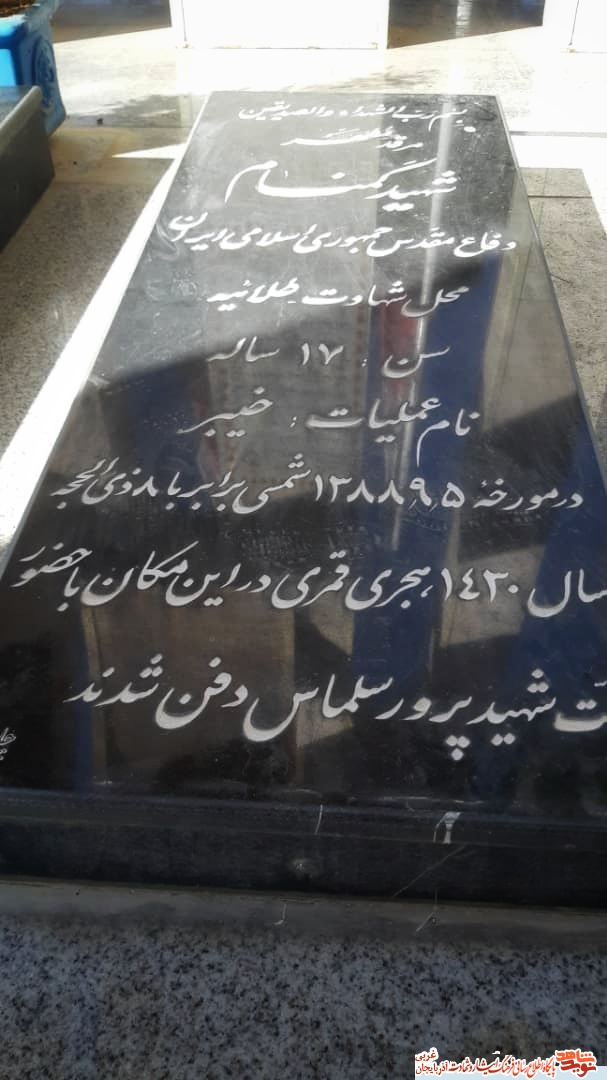 بسم رب الشهداء والصدیقین
مرقد مطهر
شهید گمنام
دفاع مقدس جمهوری اسلامی ایران
محل شهادت طلائیه
سن : ۱۷ ساله
نام عملیات : خیبر
در مورخهٔ ۱۳۸۸٫۹٫۵ شمسی برابر با ۸ ذی الحجه
سال ۱۴۳۰ هجری قمری در این مکان با حضور
شهید پرور سلماس دفن شدند
نوید شاهد
پایگاه اطلاع رسانی فرهنگ ایثار و شهادت آذربایجان غربی